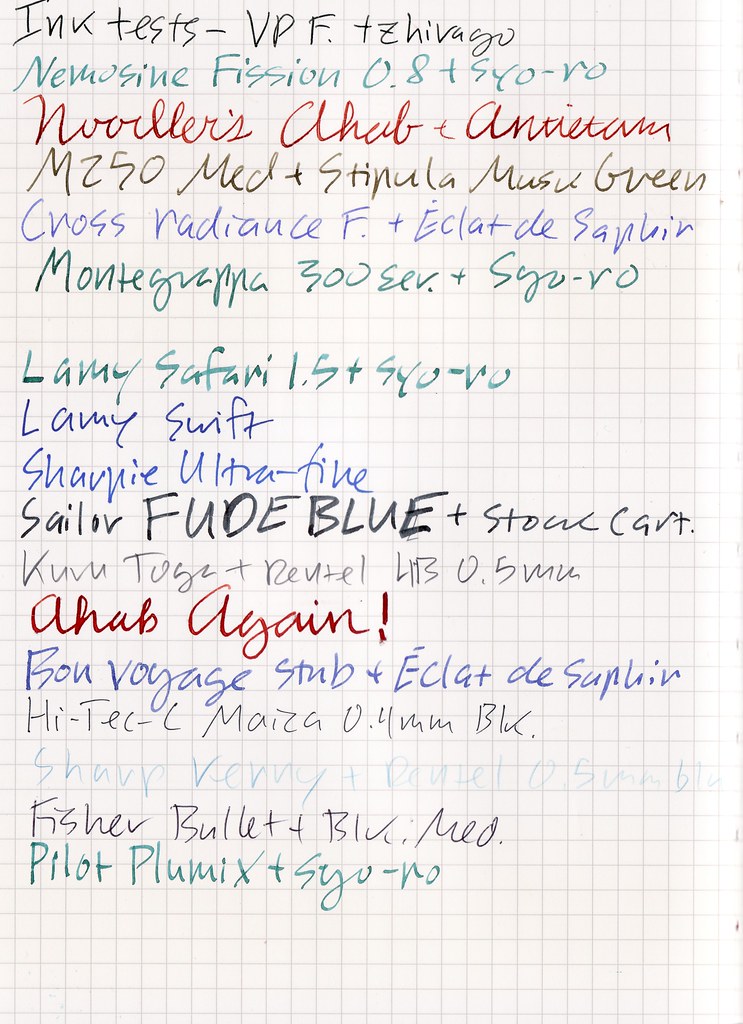 Ink tests - VP F. + zhivago
Nemosine Fission 0.8 + syo-ro
Noodler's Ahab + Antietam
M250 Med + Stipula Musk Green
Cross radiance F. + Éclat de Saphir
Montegrappa 300 ser. + Syo-ro
Lamy Safari 1.5 + syo-ro
Lamy Swift
Sharpie Ultra-fine
Sailor FUDE BLUE + stock cart.
Kuru Toga + Pentel HB 0.5mm
Ahab Again!
Bon voyage stub + Éclat de Saphir
Hi-Tec-C Maica 0.4mm Blk.
Sharp Kerry + Pentel 0.5mm blu
Fisher Bullet + Blk. Med.
Pilot Plumix + syo-ro